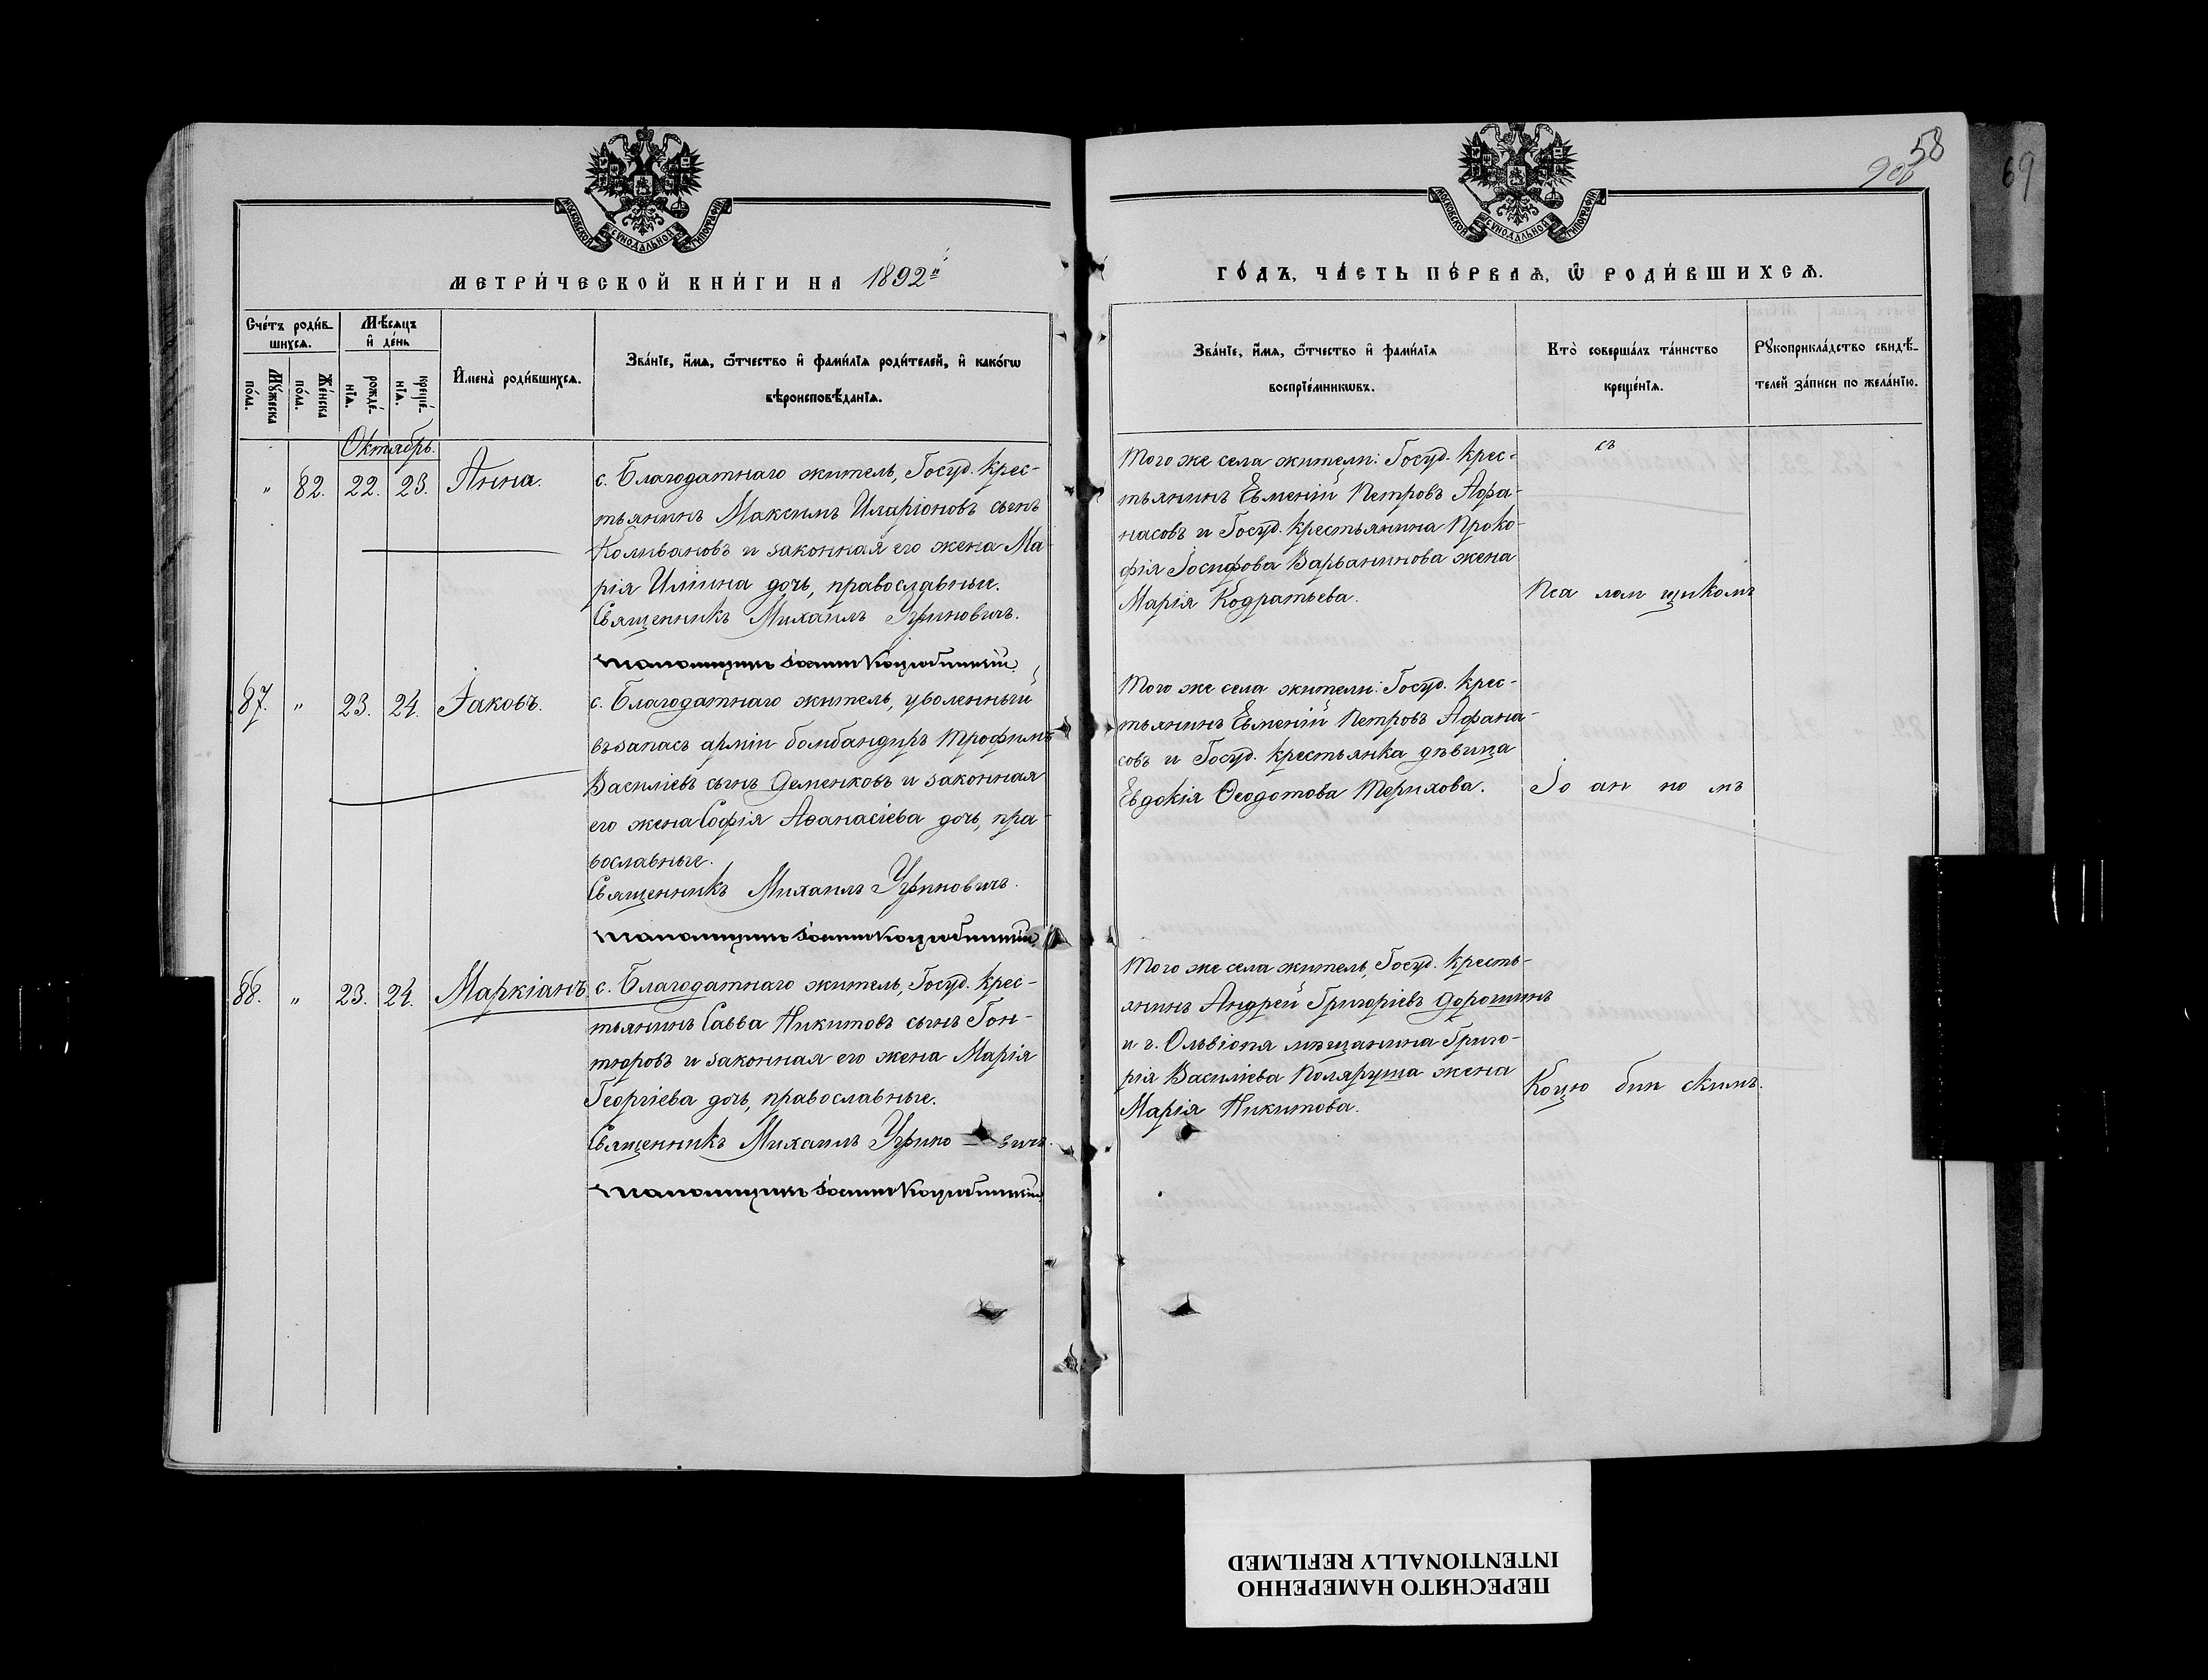 58
900
69
МОСКОВСКОЙ СѴНОДАЛЬНОЙ ТИПОГРАФІИ
МОСКОВСКОЙ СѴНОДАЛЬНОЙ ТИПОГРАФІИ
МЕТРИ́ЧЕСКОЙ КНИ́ГИ НА 1892й
Сче́тъ роди́в-
шихсѧ.
Мꙋ́жеска
по́ла.
Же́нска
по́ла.
Мѣ́сѧцъ
и҆ де́нь
рожде́-
нїѧ.
креще́-
нїѧ.
И҆мена̀ роди́вшихсѧ.
Зва́нїе, и҆́мѧ, ѻ҆́тчество и҆ фами́лїѧ роди́телей, и҆ како́гѡ
вѣроисповѣ́данїѧ.
Октябрь.
" 82. 22. 23. Анна.
с. Благодатнаго житель, Госуд. крес-
тьянинъ Максимъ Иларіоновъ сынъ
Коливановъ и законная его жена Ма-
рія Иліина дочь, православные.
Священникъ Михаилъ Угриновичъ.
Псаломщикъ Іоаннъ Коцюбинскій.
87. " 23. 24. Іаковъ.
с. Благодатнаго житель, уволенный
въ запасъ арміи бомбандиръ Трофимъ
Василіевъ сынъ Деменковъ и законная
его жена Софія Аѳанасіева дочь, пра-
вославные.
Священникъ Михаилъ Угриновичъ.
Псаломщикъ Іоаннъ Коцюбинскій.
88. " 23. 24. Маркіанъ
с. Благодатнаго житель, Госуд. крес-
тьянинъ Савва Никитовъ сынъ Гон-
тюровъ и законная его жена Марія
Георгіева дочь, православные.
Священникъ Михаилъ Угриновичъ.
Псаломщикъ Іоаннъ Коцюбинскій.
ГО́ДЪ, ЧА́СТЬ ПЕ́РВАѦ, Ѡ҆ РОДИ́ВШИХСѦ.
Зва́нїе, и҆́мѧ, ѻ҆́тчество и҆ фами́лїѧ
воспрїе́мникѡвъ.
Кто̀ соверша́лъ та́инство
креще́нїѧ.
Рꙋкоприкла́дство свидѣ́-
телей за́писи по жела́нїю.
Того же села жители: Госуд. крес-
тьянинъ Евменій Петровъ Афа-
насовъ и Госуд. крестьянина Проко-
фія Іосифова Варванинова жена
Марія Кодратьева.
Того же села жители: Госуд. крес-
тьянинъ Евменій Петровъ Афана-
совъ и Госуд. крестьянка дѣвица
Евдокія Ѳеодотова Терихова.
Того же села житель, Госуд. кресть-
янинъ Андрей Григоріевъ Дорошинъ
и г. Ольвіопя мѣщанина Григо-
рія Василіева Поляруша жена
Марія Никитова.
съ
Пса лом щикомъ
Іо ан но мъ
Коцю бин скимъ.
ПЕРЕСНЯТО НАМЕРЕННО
INTENTIONALLY REFILMED